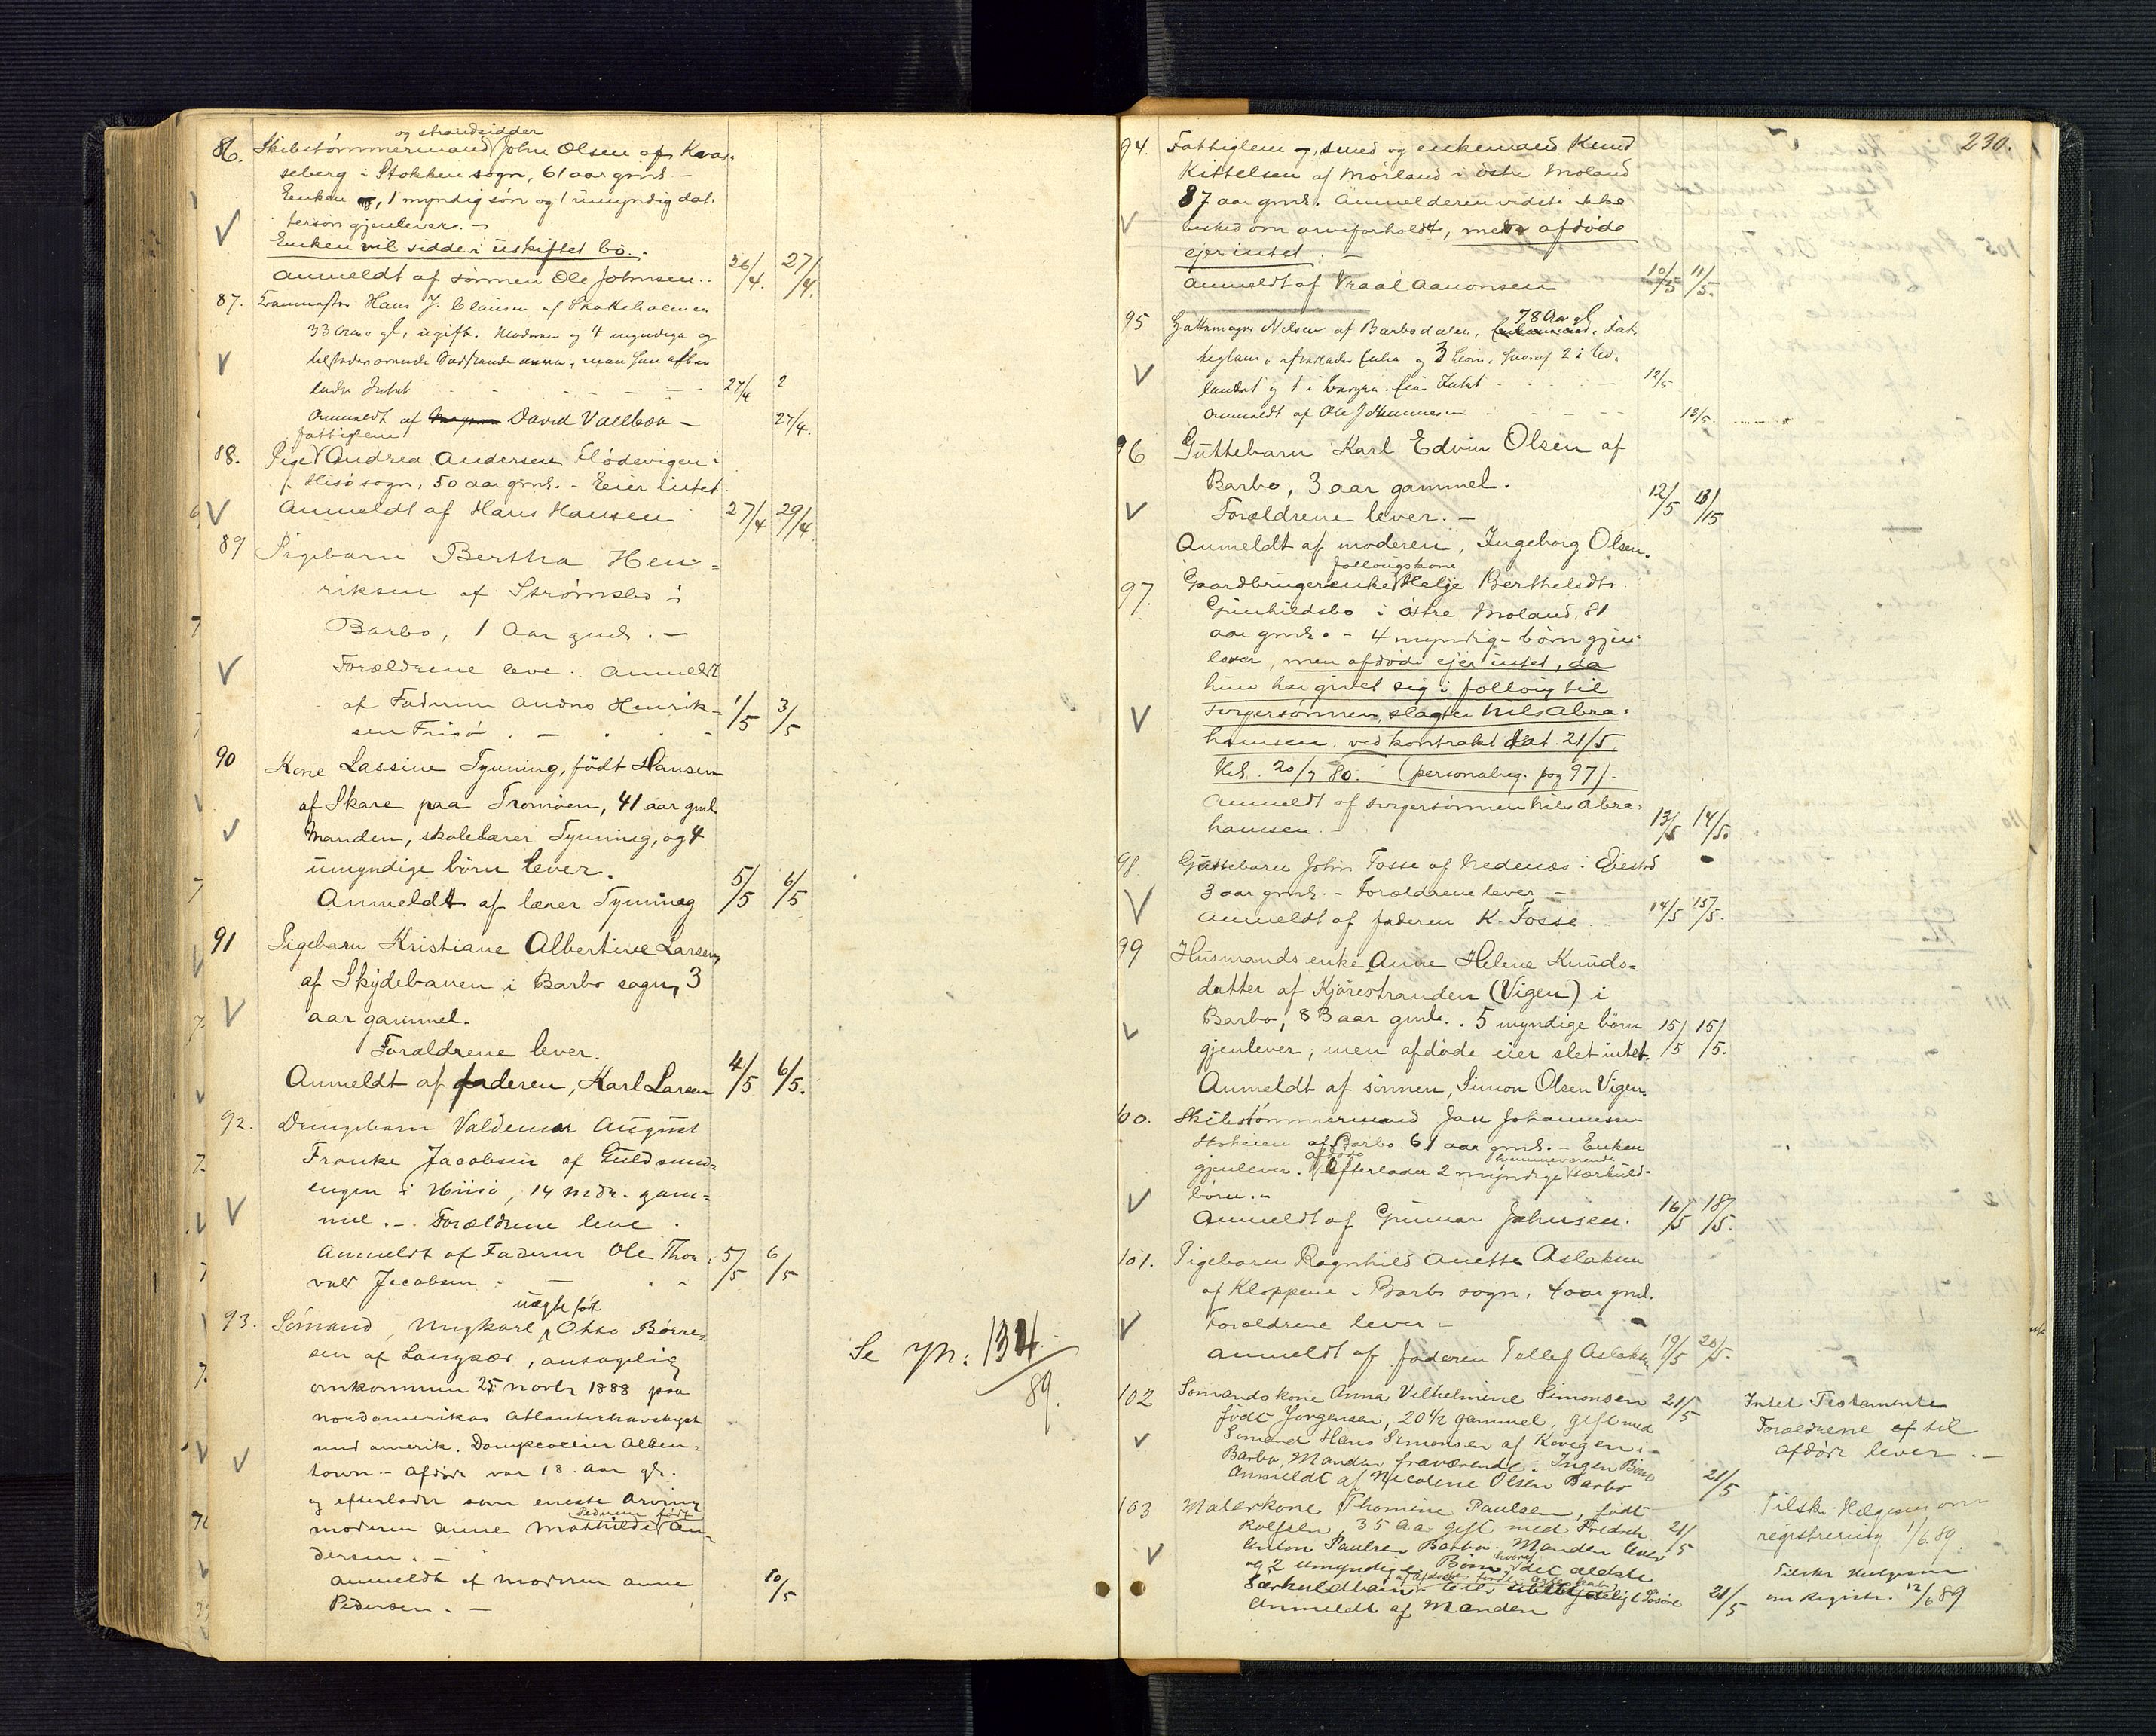 og strandsidder
86. Skibstømmermand John Olsen af Kvas-
seberg i Stokken sogn, 61 aar gml. -
Enken, 1 myndig søn og 1 umyndig dat-
tersøn gjenlever. -
Enken vil sidde i uskiftet bo. -
anmeldt af sønnen Ole Johnsen. 26/4. 27/4.
87. Hans J. Clausen af Skatteholmen
33 Aar gl, ugift. Moderen og 4 myndige og
tilstedeværende Sødskende
lader Intet - 27/4 2
Anmeldt af David Vallboa - 27/4.
fattiglem
88. Pige Andrea Andersen Flødevigen i
Hisø sogn, 50 aar gml. - Eier intet.
Anmeldt af Hans Hansen 27/4 29/4.
89 Pigebarn Bertha Hen-
riksen af Strømsbo i
Barbo, 1 Aar gml. -
Forældrene leve. Anmeldt
af Faderen Andres Henrik-
sen Frisø. - 1/5 3/5
90 Kone Lassine Tynning, født Hansen
af Skare paa Tromøen, 41 aar gml
Manden, skolelærer Tynning, og 4
umyndige børn lever.
Anmeldt af lærer Tynning 5/5 6/5
91 Pigebarn Kristiane Albertine Larsen,
af Skydebanen i Barbo sogn, 3
aar gammel.
Forældrene lever.
Anmeldt af faderen, Karl Larsen 4/5 6/5.
92. Drengebarn Valdemar August
Franke Jacobsen af Guldsmed-
engen i Hiisø, 14 Mdr. gam-
mel. - Forældrene leve.
Anmeldt af Faderen Ole Thor-
vald Jacobsen - 5/5 6/5
uægte født
93. Sømand, Ungkarl, Otto Børre-
sen af Langsæ, antagelig
omkommen 25 novbr 1888 paa
nordamerikas Atlanterhavskyst
med amerik. Damp Allen-
town - Afdøde var 18 Aar gl.
og efterlader som eneste Arving
Pedersen født
moderen Anne Mathilde An-
dersen. -
Anmeldt af moderen Anne
Pedersen. - 10/5
Se No: 134/89.
230.
94. Fattiglem og smed og enkemand Knud
Kittelsen af Mørland i Østre Moland
87 aar gml. Anmelderen vidste ikke
besked om arveforholdt, men afdøde
ejer intet. -
Anmeldt af Vraal Aanonsen 10/5 11/5.
78 Aar gl
95 Nilsen af Barbodalen, Fat-
tiglem, efterlader Enke og 3 Børn, hvoraf 2 i Ud-
landet og 1 i Bergen. Eier Intet - 12/5
Anmeldt af Ole Johannesen - 13/5.
96 Guttebarn Karl Edvin Olsen af
Barbo, 3 aar gammel.
Forældrene lever. - 12/5 13/15
Anmeldt af moderen, Ingeborg Olsen.
føllougskone
97. Gaardbrugerenke Helje Berthelsdtr.
Gunhildsbo i østre Moland, 81
aar gml. - 4 myndige børn gjen-
lever, men afdøde ejer intet, da
hun har givet sig i følloug til
svigersønnen, slagter Nils Abra-
hamsen. ved kontrakt dat. 21/5
tgl. 20/7 80. (personalreg. pag 97).
Anmeldt af svigersønnen Nils Abra-
hamsen. - 13/5 14/5.
98. Guttebarn John Fosse af Nedenæs i Øiestd
3 aar gml. - Forældrene lever -
Anmeldt af faderen K. Fosse. 14/5 15/5.
99 Husmandsenke Anne Helene Knuds-
datter af Kjørestranden (Vigen) i
Barbo, 83 aar gml. . 5 myndige børn 15/5 15/5.
gjenlever, men afdøde eier slet intet.
Anmeldt af sønnen, Simon Olsen Vigen.
60. Skibstømmermand Jan Johannessen
af Barbo 61 aar gml. - Enken
afdøde hjemmeværende
gjenlever. Efterlader 2 myndige særkuld-
børn. -
Anmeldt af Gunnar Johnsen. 16/5 18/5.
101. Pigebarn Ragnhild Anette Aslaksen
af Kloppene i Barbo sogn, 4 aar gml.
Forældrene lever -
Anmeldt af faderen Tellef Aslaksen 19/5 20/5.
102 Sømandskone Anna Vilhelmine Simonsen 21/5 Intet Testamente
født Jørgensen, 20 1/2 gammel, gift med Forældrene af til
Sømand Hans Simonsen af Kovigen i afdøde lever. -
Barbo, Manden fraværende. Ingen Børn
Anmeldt af Nicoline Olsen Barbo 21/5
103 Malerkone Thomine Paulsen, født Tilsk. Helgesen om
Rolfsen, 35 Aar gift med Fredrik 21/5 registrering 1/6 89.
Anton Paulsen Barbo. Manden lever
hvoraf
og 2 umyndige Børn, det ældste Tilskr Helgesen
Særkuldbarn om Registr. 12/6 89
Anmeldt af Manden 21/5